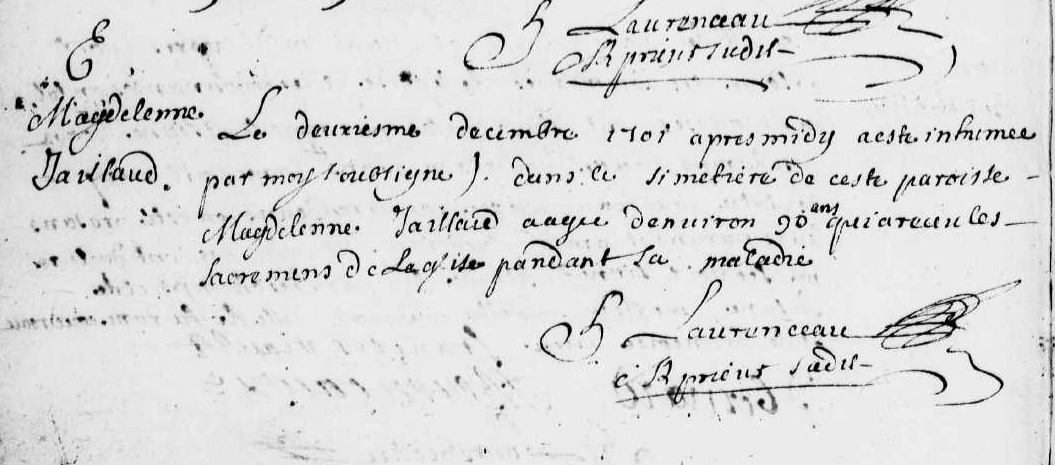 H Laurenceau
CR prieur susdit
E
Magdelenne
Jaillaud.
Le deuxiesme decembre 1701 apres midy a este inhumee
par moy soubsigne J. dans le simetiere de ceste paroisse
Magdelenne Jaillaud aagee denviron 90 ans qui a receu les
sacremens de Leglise pandant sa maladie
H Laurenceau
CR prieur susdit